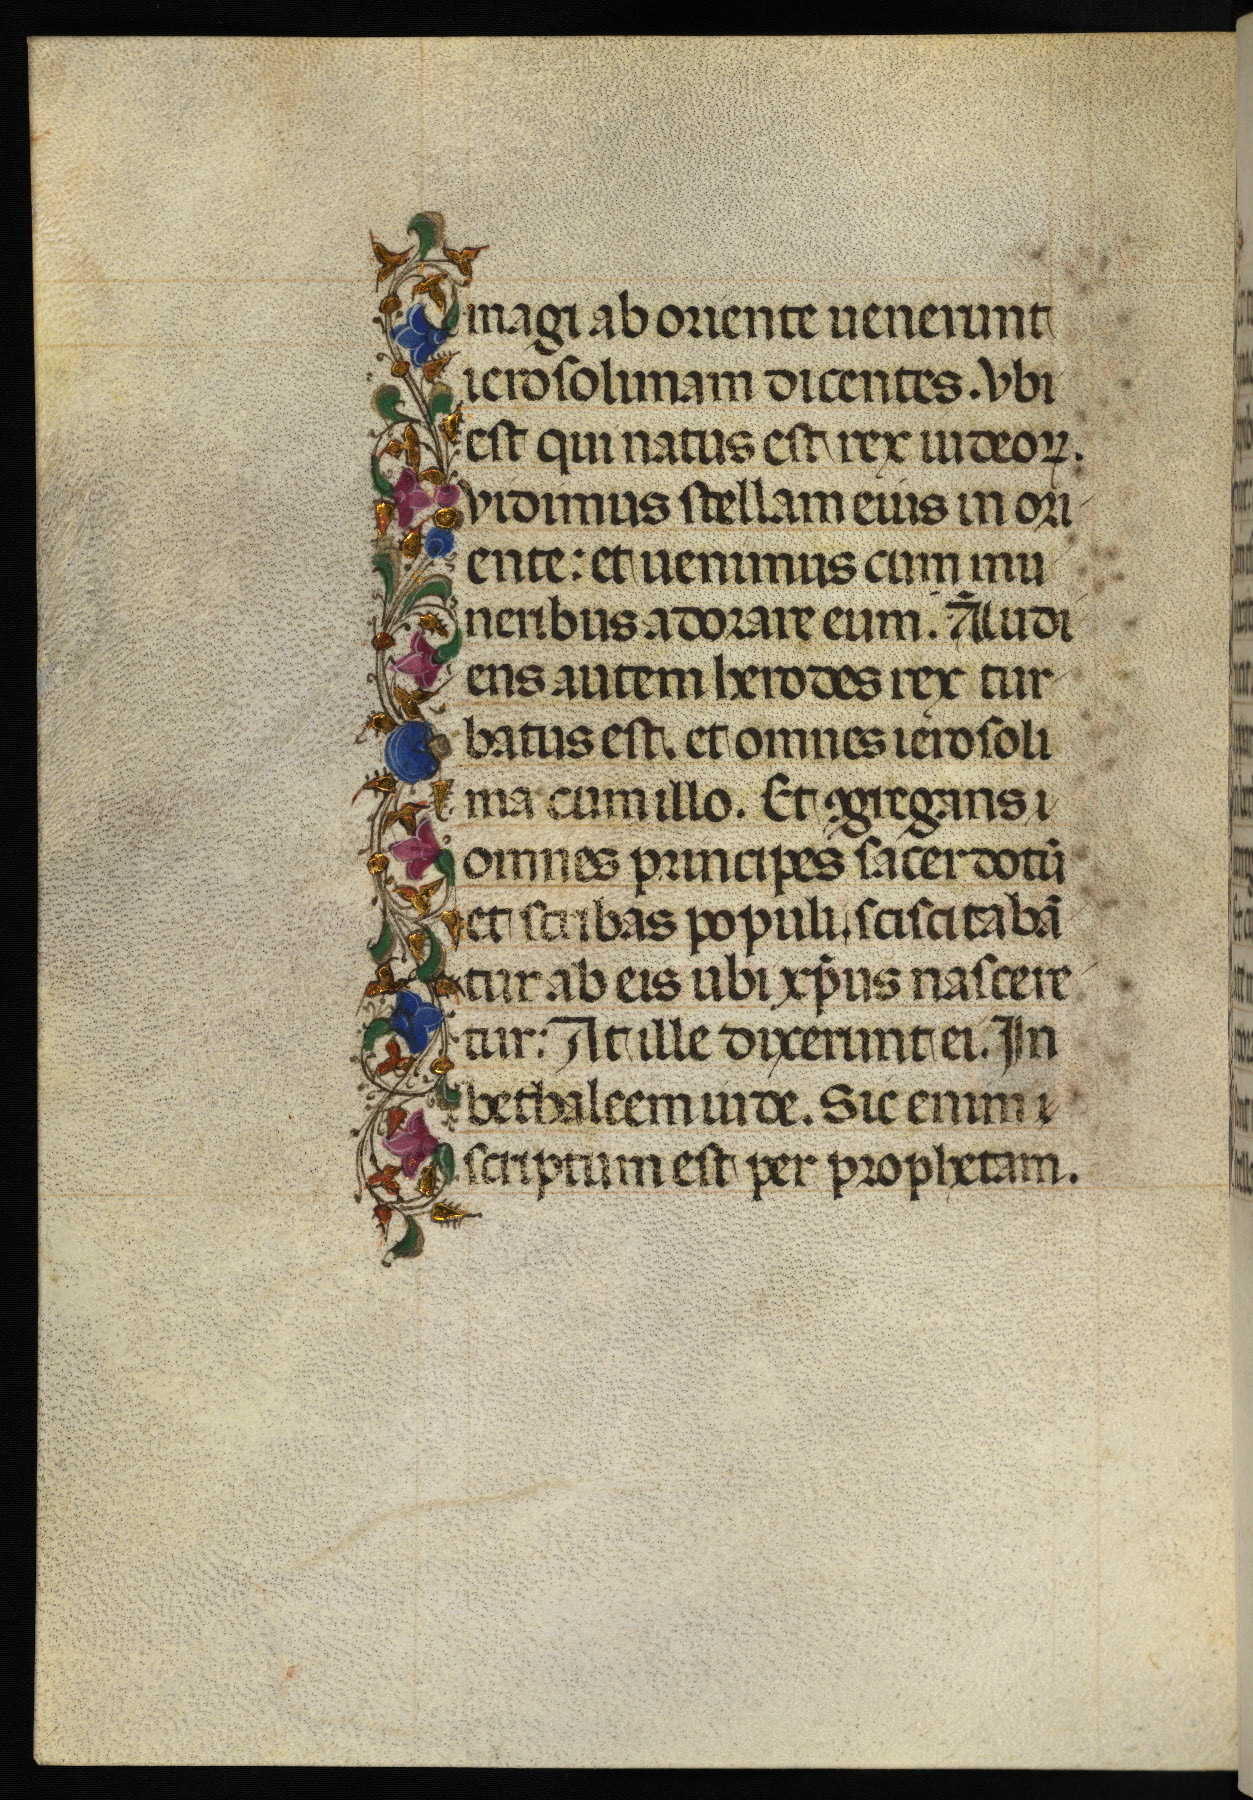 magi ab oriente uenerunt
ierosolimam dicentes. Vbi
est qui natus est rex iudeoꝝ.
vidimus stellam eius in ori
ente: et uenimus cum mu
neribus adorare eum. Audi
ens autem herodes rex tur
batus est. et omnes ierosoli
ma cum illo. Et ꝯgregans i
omnes principes sacerdotū
et scribas populi. sciscitabā
tur ab eis ubi xp̄us nascere
tur: At ille dixerunt ei. In
bethaleem iude. Sic enim i
scriptum est per prophetam.